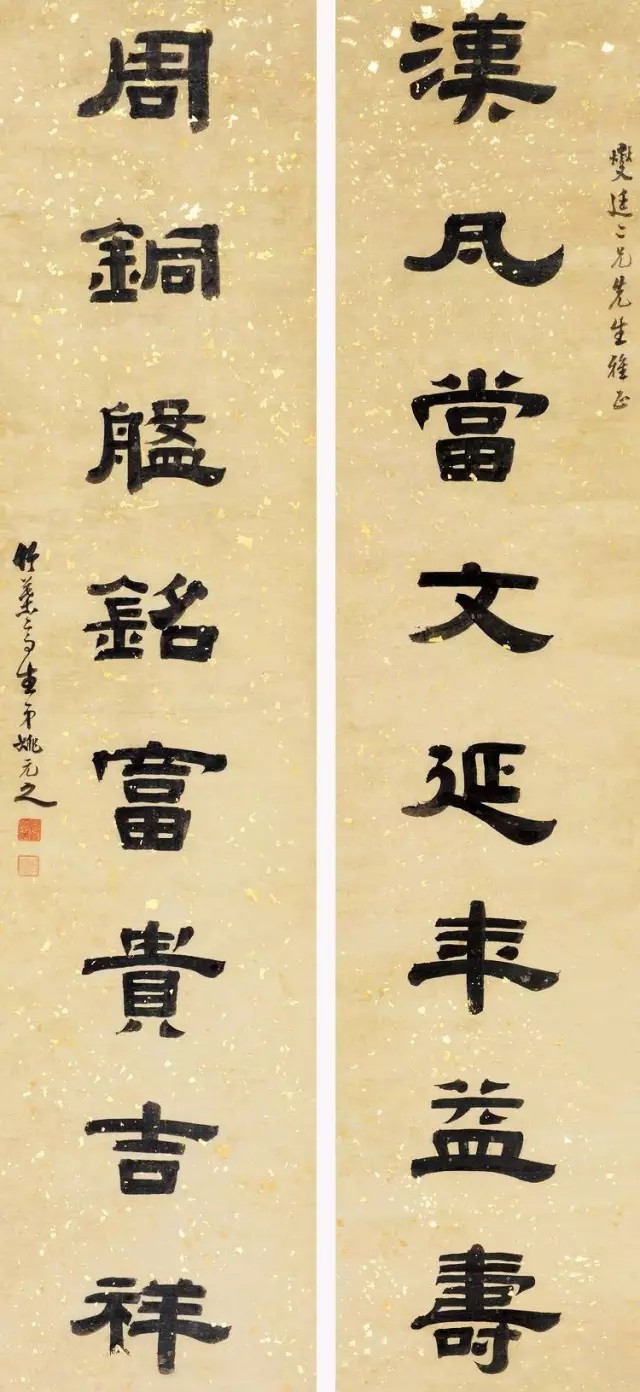 燮廷二兄先生雅正
漢瓦當文延年益壽
周銅盤銘富貴吉祥
竹葉亭生弟姚元之